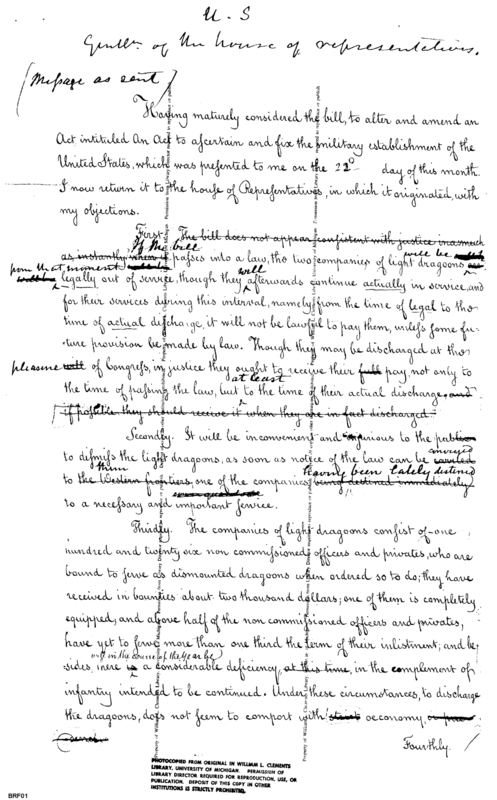 U. S
Gentln. of the house of representatives.
(Message as sent)
Having maturely considered the bill, to alter and amend an
Act intituled An Act to ascertain and fix the military establishment of the
United States, which was presented to me on the 22d day of this month.
I now return it to the house of Representatives, in which it originated, with
my objections.
First. The bill does not appear consistent with justice inasmuch
If the bill
as instantly when it passes into a law, the two companies of light dragoons will be
from that moment
legally out of service, though they will afterwards continue actually in service, and
for their services during this interval, namely from the time of legal to the
time of actual discharge, it will not be lawful to pay them, unless some fu-
ture provision be made by law. Though they may be discharged at the
pleasure of Congress, in justice they ought to receive their full pay, not only to
at least
the time of passing the law, but to the time of their actual discharge, and
if possible they should receive it when they are in fact discharged.
Secondly. It will be inconvenient and injurious to the public
to dismiss the light dragoons, as soon as notice of the law can be conveyed
them having been lately destined
to the Western frontiers, one of the companies being destined immediately
to a necessary and important service.
Thirdly. The companies of light dragoons consist of one
hundred and twenty six non commissioned officers and privates, who are
bound to serve as dismounted dragoons when ordered so to do; they have
received in bounties about two thousand dollars; one of them is completely
equipped, and above half of the non commissioned officers and privates,
have yet to serve more than one third the term of their inlistment; and be-
sides, there is a considerable deficiency, at this time, in the complement of
infantry intended to be continued. Under these circumstances, to discharge
the dragoons, does not seem to comport with strict oeconomy,
Fourthly.
PHOTOCOPIED FROM ORIGINAL IN WILLIAM L. CLEMENTS
LIBRARY, UNIVERSITY OF MICHIGAN. PERMISSION OF
LIBRARY DIRECTOR REQUIRED FOR REPRODUCTION, USE, OR
PUBLICATION. DEPOSIT OF THIS COPY IN OTHER
INSTITUTIONS IS STRICTLY PROHIBITED.
BRF01